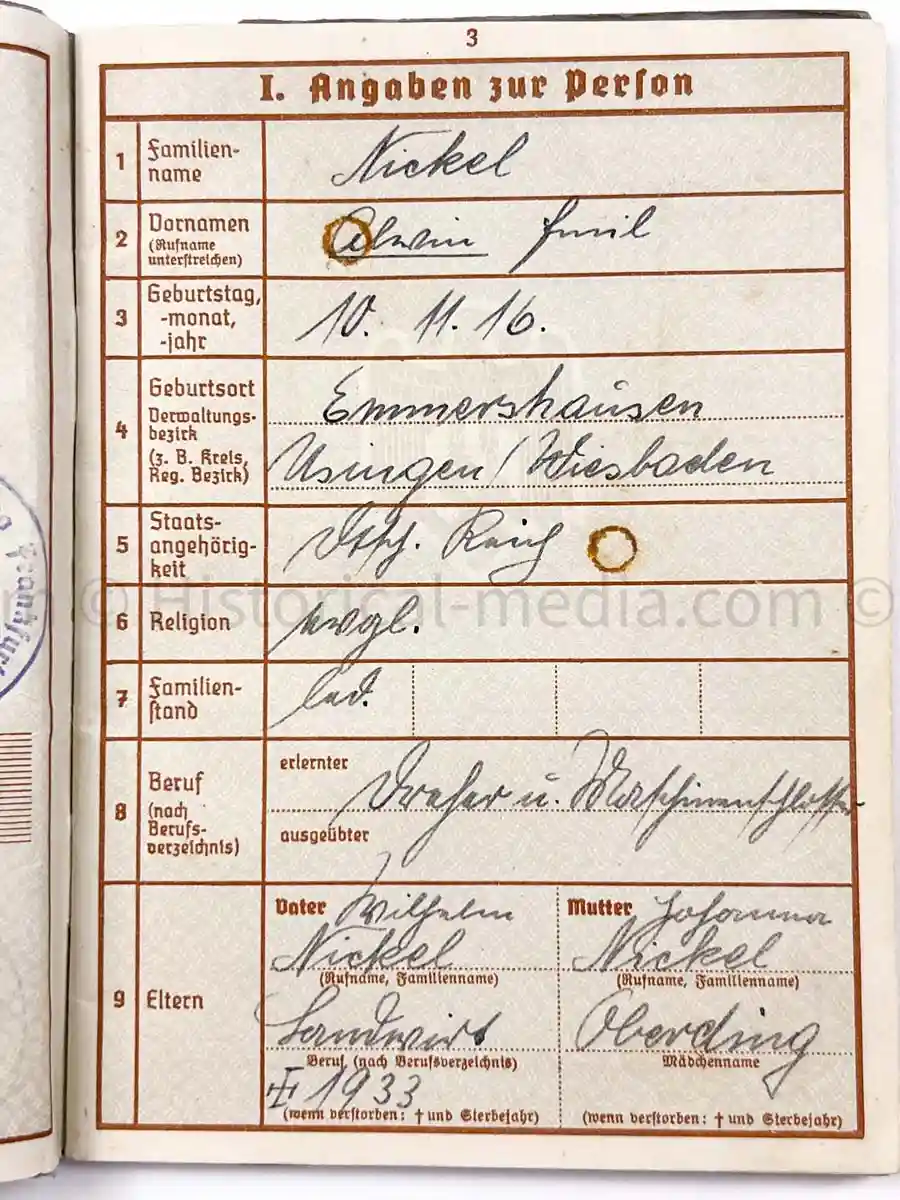 3
I. Angaben zur Person
1 Familien-
name
Nickel
2 Vornamen
(Rufname
unterstreichen)
Alwin Emil
3 Geburtstag,
-monat,
-jahr
10. 11. 16.
4 Geburtsort
Verwaltungs-
bezirk
(z. B. Kreis,
Reg. Bezirk)
Emmershausen
Usingen / Wiesbaden
5 Staats-
angehörig-
keit
Dtsch. Reich
6 Religion
evgl.
7 Familien-
stand
led.
8 Beruf
(nach
Berufs-
verzeichnis)
erlernter
Dreher u. Maschinenschlosser
ausgeübter
9 Eltern
Vater Wilhelm
Nickel
(Rufname, Familienname)
Landwirt
Beruf (nach Berufsverzeichnis)
† 1933
(wenn verstorben: † und Sterbejahr)
Mutter Johanna
Nickel
(Rufname, Familienname)
Oberding
Mädchenname
(wenn verstorben: † und Sterbejahr)
© Historical-media.com ©